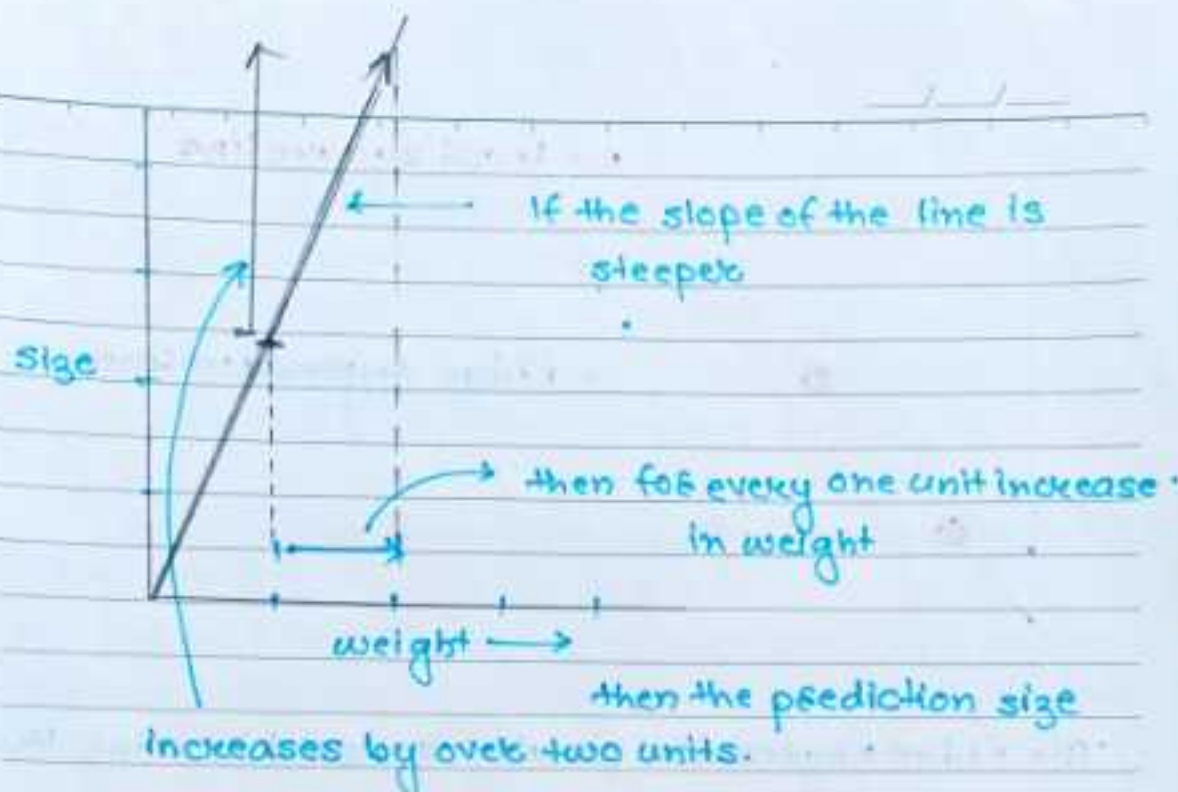 If the slope of the line is
steeper
size
then for every one unit increase
in weight
weight
then the prediction size
increases by over two units.